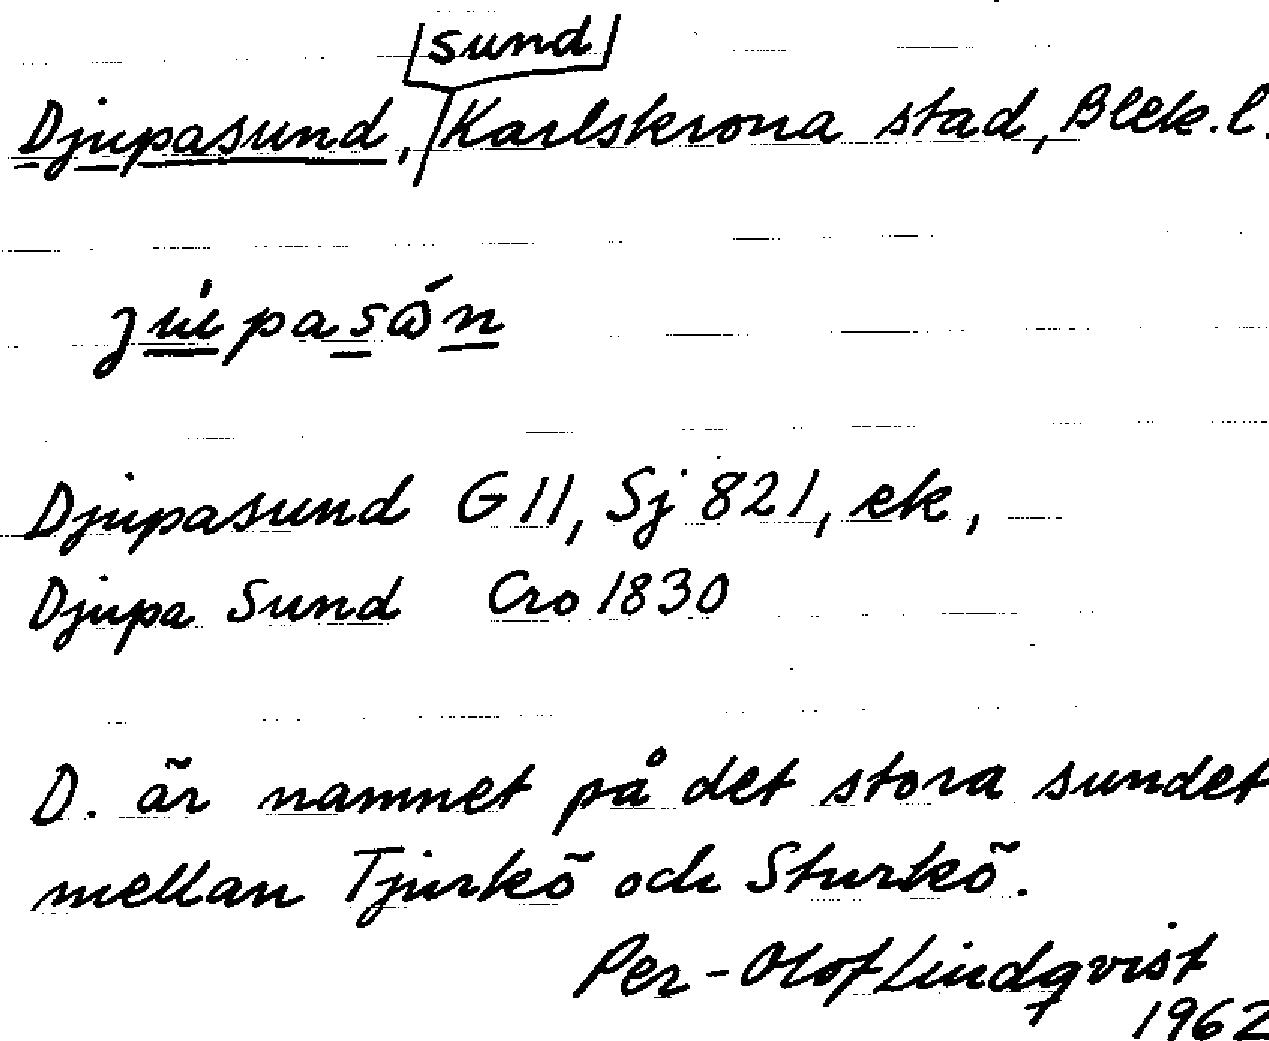 sund
Djupasund, Karlskrona stad, Blek. l.
Djupasund G 11, Sj 821, ek,
Djupa Sund Cro 1830
D. är namnet på det stora sundet
mellan Tjurkö och Sturkö.
Per-Olof Lindqvist
1962